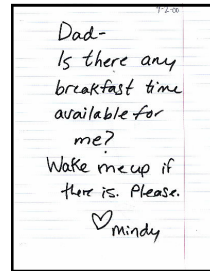 9-2-00
Dad-
Is there any
breakfast time
available for
me?
Wake me up if
there is. Please.
♡ mindy